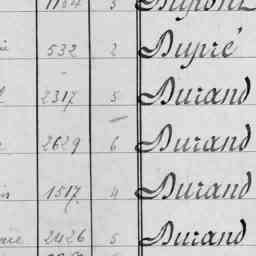 532 2 Dupré
2317 5 Durand
2629 6 Durand
1517 4 Durand
2426 5 Durand